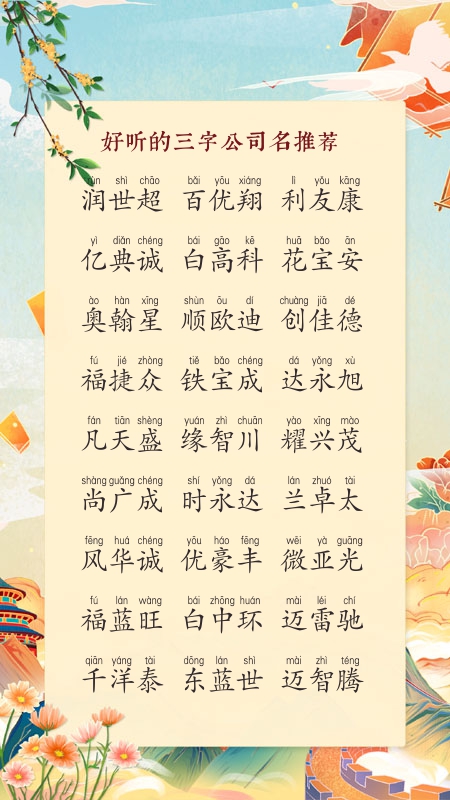 好听的三字公司名推荐
rùn shì chāo bǎi yōu xiáng lì yǒu kāng
润世超 百优翔 利友康
yì diǎn chéng bái gāo kē huā bǎo ān
亿典诚 白高科 花宝安
ào hàn xīng shùn ōu dí chuàng jiā dé
奥翰星 顺欧迪 创佳德
fú jié zhòng tiě bǎo chéng dá yǒng xù
福捷众 铁宝成 达永旭
fán tiān shèng yuán zhì chuān yào xīng mào
凡天盛 缘智川 耀兴茂
shàng guǎng chéng shí yǒng dá lán zhuó tài
尚广成 时永达 兰卓太
fēng huá chéng yōu háo fēng wēi yà guāng
风华诚 优豪丰 微亚光
fú lán wàng bái zhōng huán mài léi chí
福蓝旺 白中环 迈雷驰
qiān yáng tài dōng lán shì mài zhì téng
千洋泰 东蓝世 迈智腾